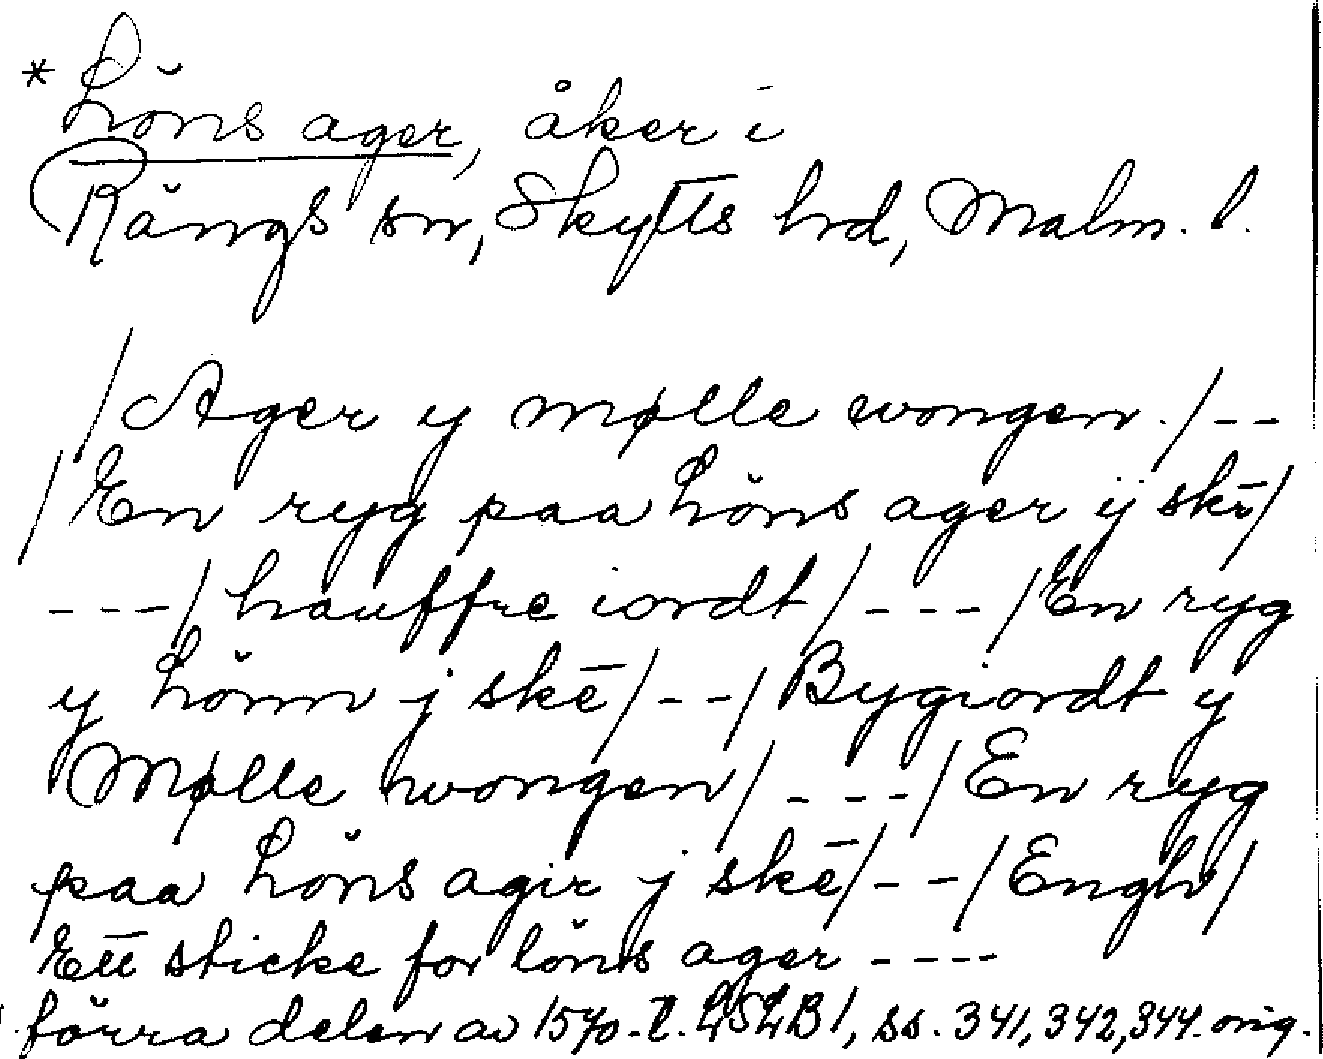 * Löns ager, åker i
Rängs sn, Skytts hd, Malm. l.
/Ager y mølle wongen./--
/En ryg paa Löns ager ij skē/
---/hauffre iordt/---/En ryg
y Lönn j skē/--/Bygiordt y
Mølle wongen/---/En ryg
paa Löns agir j skē/--/Engh/
Ett sticke for löns ager ----
förra delen av 1570-t. LSLB1, ss. 341, 342, 344. orig.